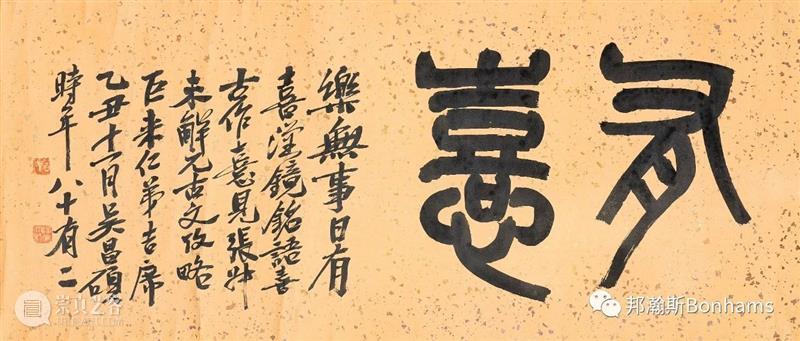 有憙
樂無事日有
喜漢鏡銘語喜
古作憙見張尗
未解元古文攷略
巨來仁弟吉席
乙丑十一月吳昌碩
時年八十有二
崇真艺客
邦瀚斯Bonhams